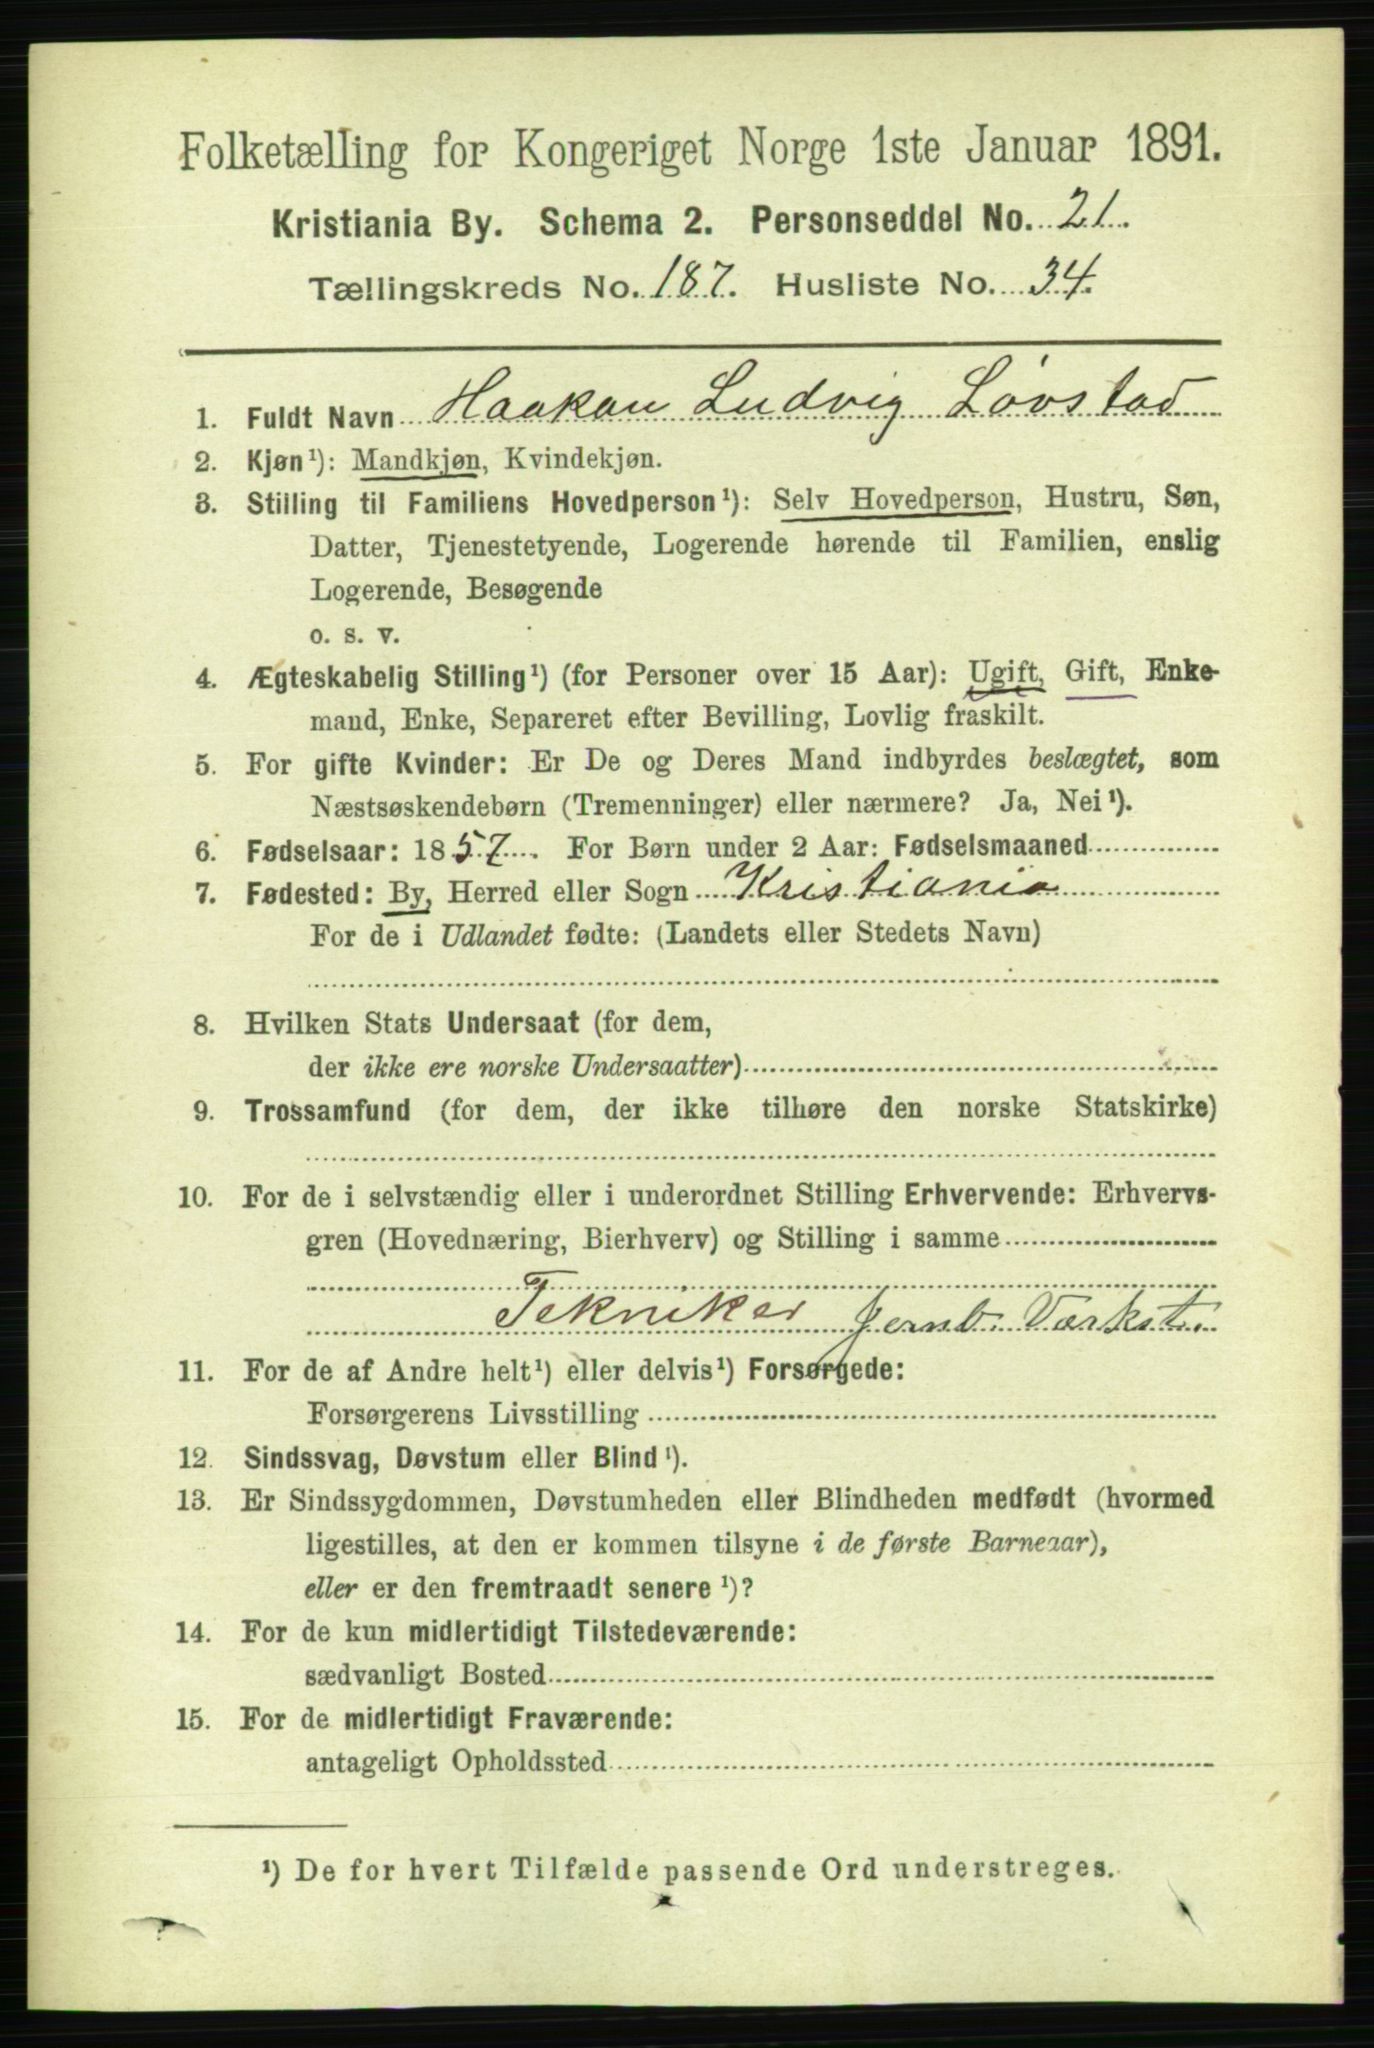 Folketælling for Kongeriget Norge 1ste Januar 1891.
Kristiania By. Schema 2. Personseddel No. 21.
Tællingskreds No. 187. Husliste No. 34.
1. Fuldt Navn Haakon Ludvig Løvstad
2. Kjøn¹): Mandkjøn, Kvindekjøn.
3. Stilling til Familiens Hovedperson¹): Selv Hovedperson, Hustru, Søn,
Datter, Tjenestetyende, Logerende hørende til Familien, enslig
Logerende, Besøgende
o. s. v.
4. Ægteskabelig Stilling¹) (for Personer over 15 Aar): Ugift, Gift, Enke-
mand, Enke, Separeret efter Bevilling, Lovlig fraskilt.
5. For gifte Kvinder: Er De og Deres Mand indbyrdes beslægtet, som
Næstsøskendebørn (Tremenninger) eller nærmere? Ja, Nei¹).
6. Fødselsaar: 1857. For Børn under 2 Aar: Fødselsmaaned
7. Fødested: By, Herred eller Sogn Kristiania
For de i Udlandet fødte: (Landets eller Stedets Navn)
8. Hvilken Stats Undersaat (for dem,
der ikke ere norske Undersaatter)
9. Trossamfund (for dem, der ikke tilhøre den norske Statskirke)
10. For de i selvstændig eller i underordnet Stilling Erhvervende: Erhvervs-
gren (Hovednæring, Bierhverv) og Stilling i samme
Tekniker Jernb. Værkst.
11. For de af Andre helt¹) eller delvis¹) Forsørgede:
Forsørgerens Livsstilling
12. Sindssvag, Døvstum eller Blind¹).
13. Er Sindssygdommen, Døvstumheden eller Blindheden medfødt (hvormed
ligestilles, at den er kommen tilsyne i de første Barneaar),
eller er den fremtraadt senere¹)?
14. For de kun midlertidigt Tilstedeværende:
sædvanligt Bosted
15. For de midlertidigt Fraværende:
antageligt Opholdssted
¹) De for hvert Tilfælde passende Ord understreges.